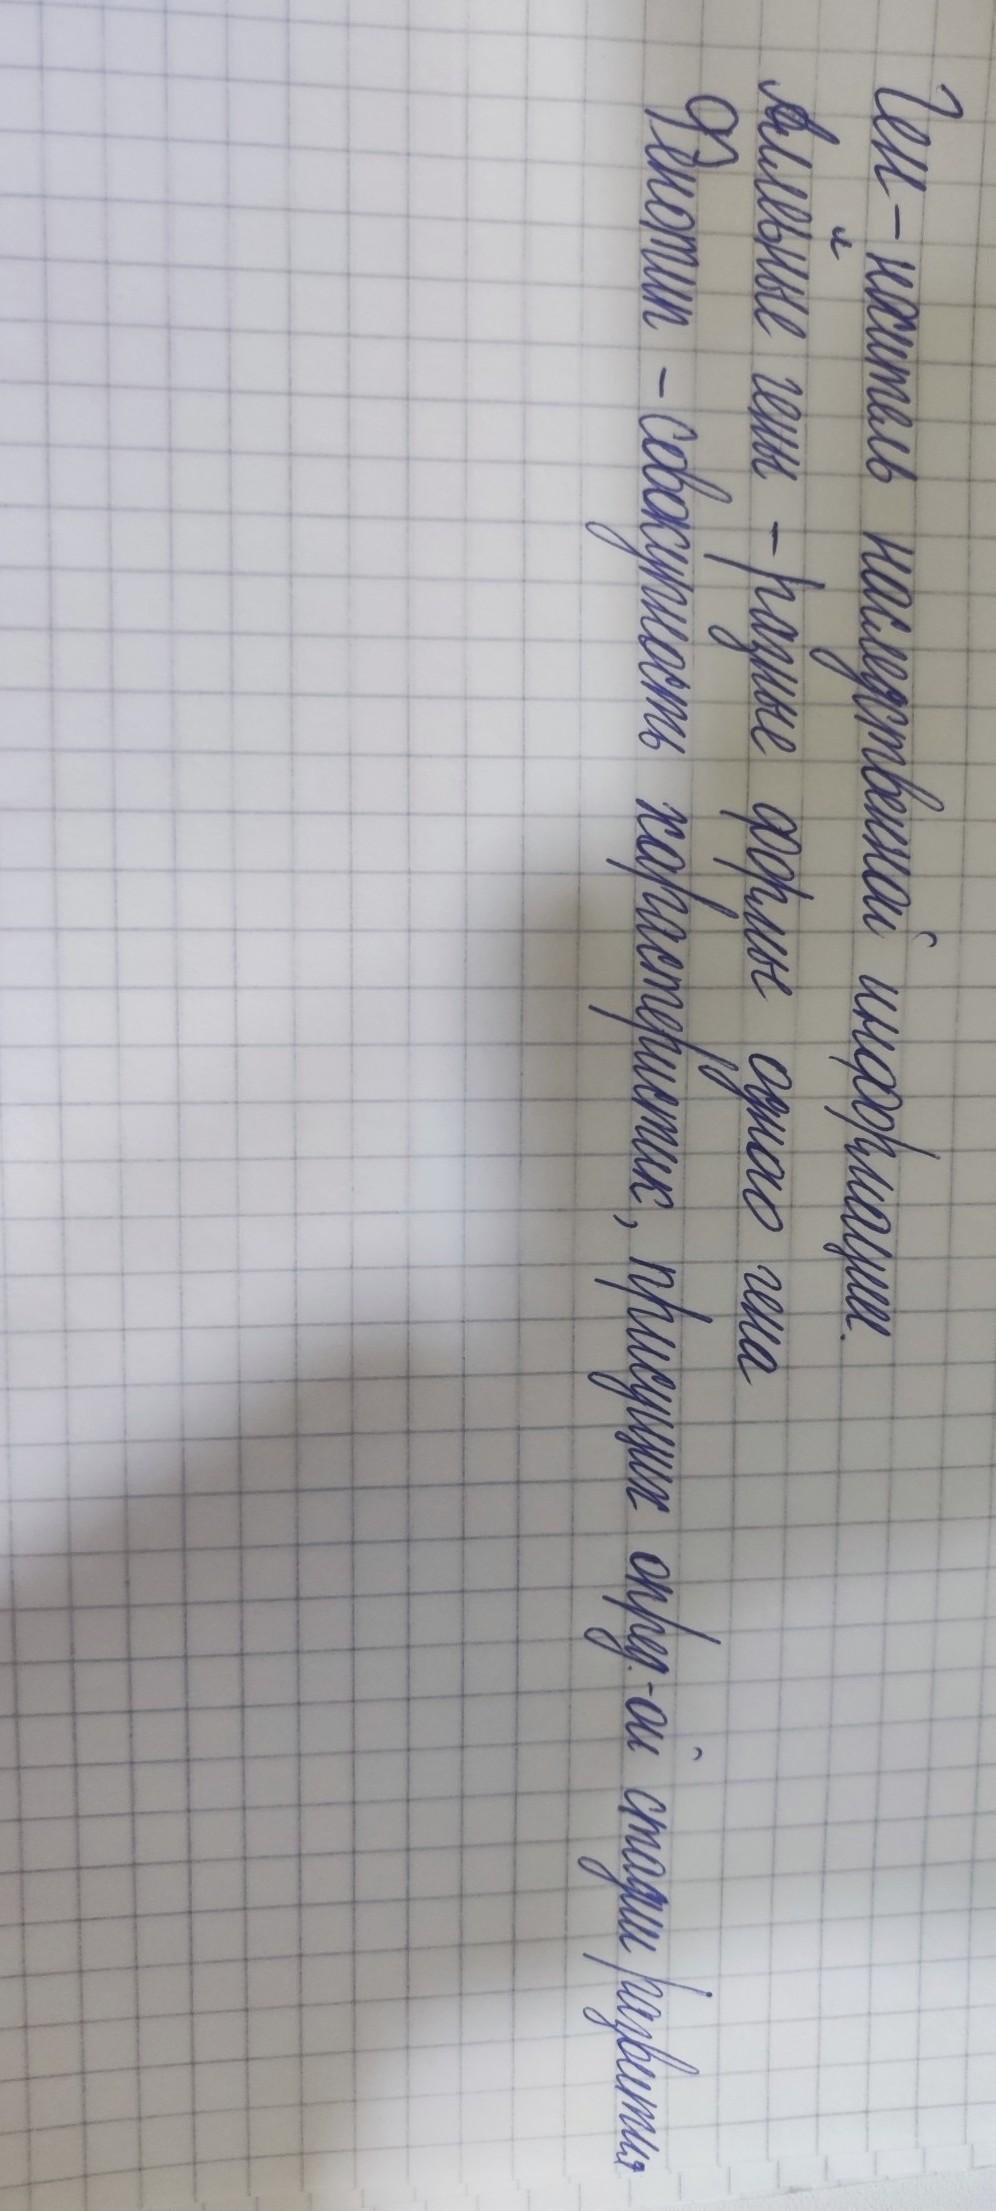 Ген - носитель наследственной информации.
Аллельные гены - разные формы одного гена
Фенотип - совокупность характеристик, присущих опред.-ой стадии развития